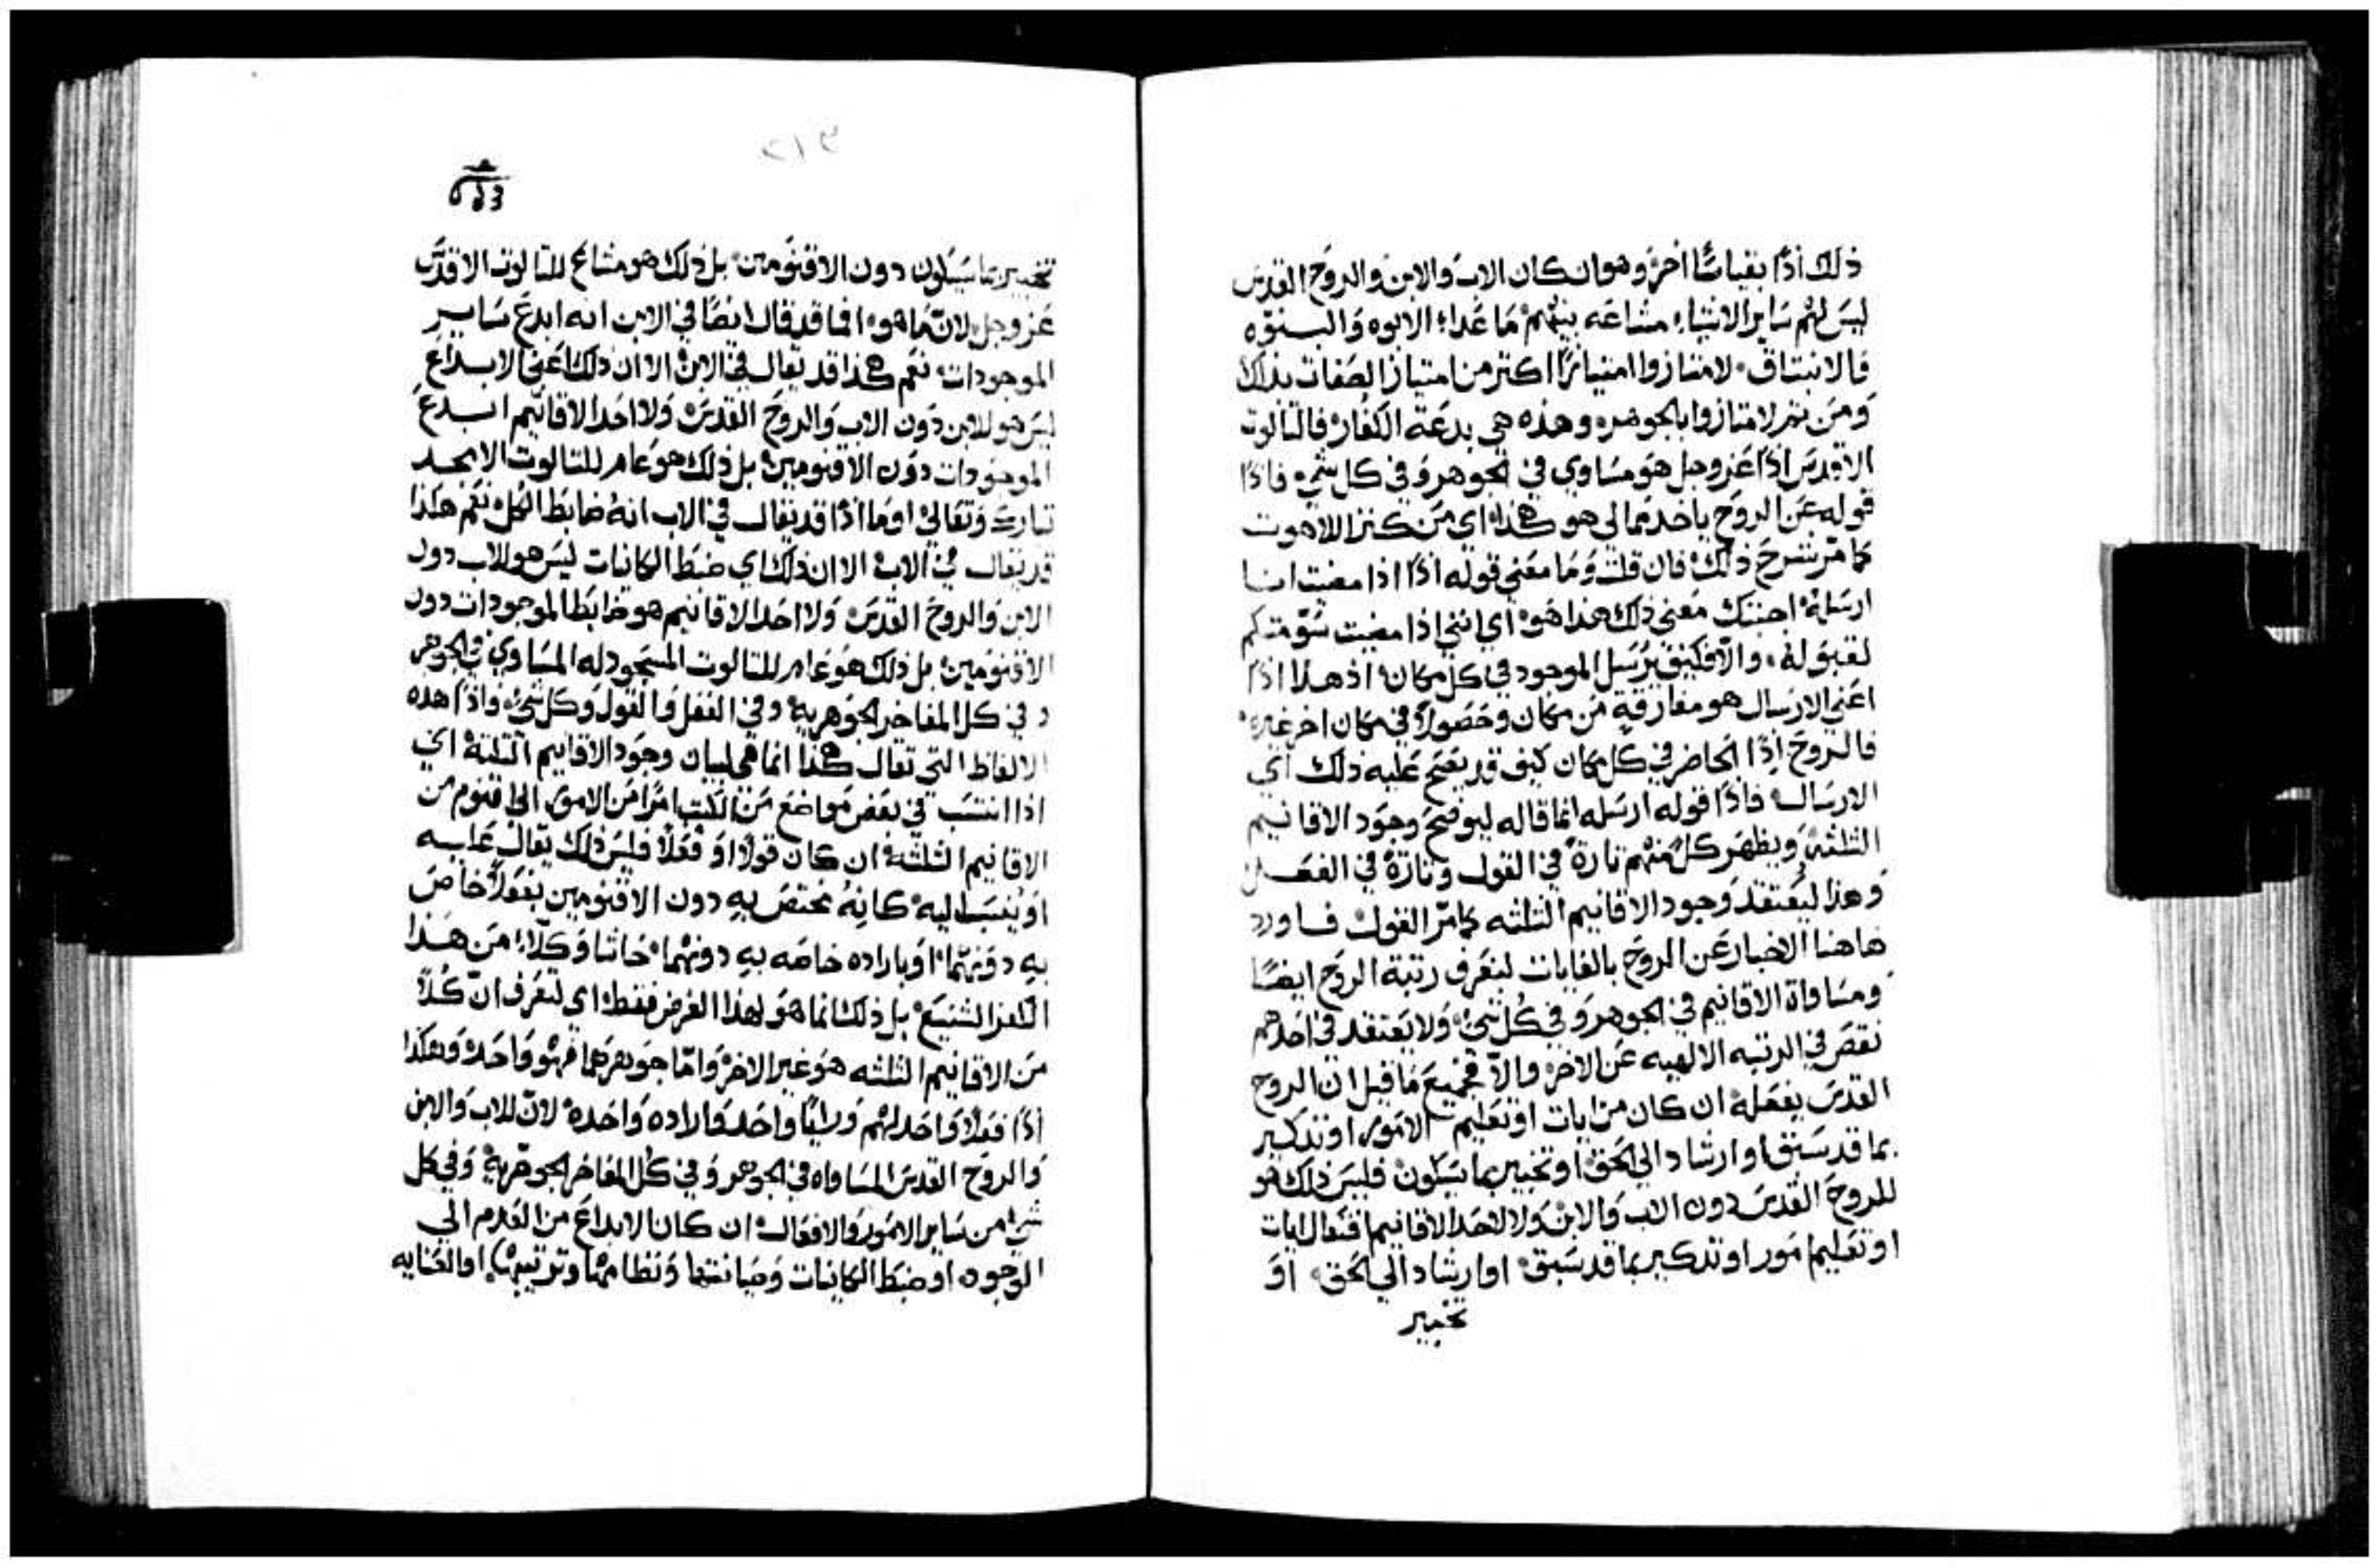 ذلك اذًا بقياسًا اخر وهو ان كان الاب والابن والروح القدس
ليس لهم ساير الاشياء مشاعه بينهم ما عدا الابوه والبنوّه
فالانبثاق لامتازوا امتيازًا اكتر من امتياز الصفات بذلك
ومن تم لامتازوا بالجوهر وهذه هي بدعة الكفار فالتالوت
الاقدس اذًا عز وجل هو مساوي في الجوهر وفي كل شيء فاذًا
قوله عن الروح ياخد مما لي هو هكذا اي من كنز اللاهوت
كما مرّ شرح ذلك فان قلت وما معني قوله اذًا اذا مضيت انا
ارسله اجبتك معني ذلك هذا هو اي انني اذا مضيت
لقبوله والّا فكيف يُرسل الموجود في كل مكان اذ هذا اذًا
اعني الارسال هو مفارقةٍ من مكان وحصولاً في مكان اخر غيره
فالروح اذًا الحاضر في كل مكان كيف قد يصح عليه ذلك اي
الارسال فاذًا قوله ارسله انما قاله ليوضح وجود الاقانيم
الثلثة ويظهر كل منهم تارةً في القول وتارةً في الفعل
وهذا ليعتقد وجود الاقانيم الثلثه كما مرّ القول فاورد
هاهنا الاخبار عن الروح بالغايات لنعرف رتبة الروح ايضًا
ومساواة الاقانيم في الجوهر وفي كُل شيء ولا يعتقد في احدهم
نقص في الرتبه الالهيه عن الاخر والّا فجميع ما قيل ان الروح
القدس يفعله ان كان من ايات او تعليم الامور او تدكير
بما قد سبق او ارشاد الي الحق او تخبير بما سيكون فليس ذلك هو
للروح القدس دون الاب والابن ولا لاحد الاقانيم افتعال ايات
او تعليم امور او تدكير بما قد سبق او ارشاد الي الحق او
تخبير
٢١٣
تخبير بما سيكون دون الاقنومين بل ذلك هو مشاع للتالوت الاقدس
عز وجل لانّ ما هو انما قد قال ايضًا في الابن انه ابدع ساير
الموجودات نعم هكذا قد تقال في الابن الا ان ذلك اعني الابداع
ليس هو للابن دون الاب والروح القدس ولا احد الاقانيم ابدع
الموجودات دون الاقنومين بل ذلك هو عام للتالوت الامجد
تبارك وتعالي او ما اذًا قد تقال في الاب انهُ ضابط الكل نعم هكذا
قد يقال في الاب الا ان ذلك اي ضبط الكاينات ليس هو للاب دون
الابن والروح القدس ولا احد الاقانيم هو ضابط الموجودات دون
الاقنومين بل ذلك هو عام للتالوت المسجود له المساوي في الجوهر
وفي كل المفاخر الجوهرية وفي الفعل والقول وكل شيء فاذًا هذه
الالفاظ التي تقال هكذا انما هي لبيان وجود الاقانيم الثلثة اي
اذا انتسب في بعض مواضع من الكتب امرًا من الامور الي اقنوم من
الاقانيم الثلثة ان كان قولاً او فعلاً فليس ذلك يقال عليه
او يُنسب اليه كانهُ مختص به دون الاقنومين بفعلاً خاص
به دونهما او باراده خاصه به دونهما حاشا وكلّا من هذا
الكفر الشنيع بل ذلك انما هو لهذا الغرض فقط اي لتعرف انّ كُلاً
من الاقانيم الثلثه هو غير الاخر وامّا جوهرهما فهو واحد وهكذا
اذًا فعلاً واحد لهم ورايًا واحد واراده واحده لانّ للاب والابن
والروح القدس المساواه في الجوهر وفي كُل المفاخر الجوهريةِ وفي كل
شيء من ساير الامور والافعال ان كان الابداع من العدم الي
الوجود او ضبط الكاينات وصيانتها ونظامها وترتيبها او العنايه